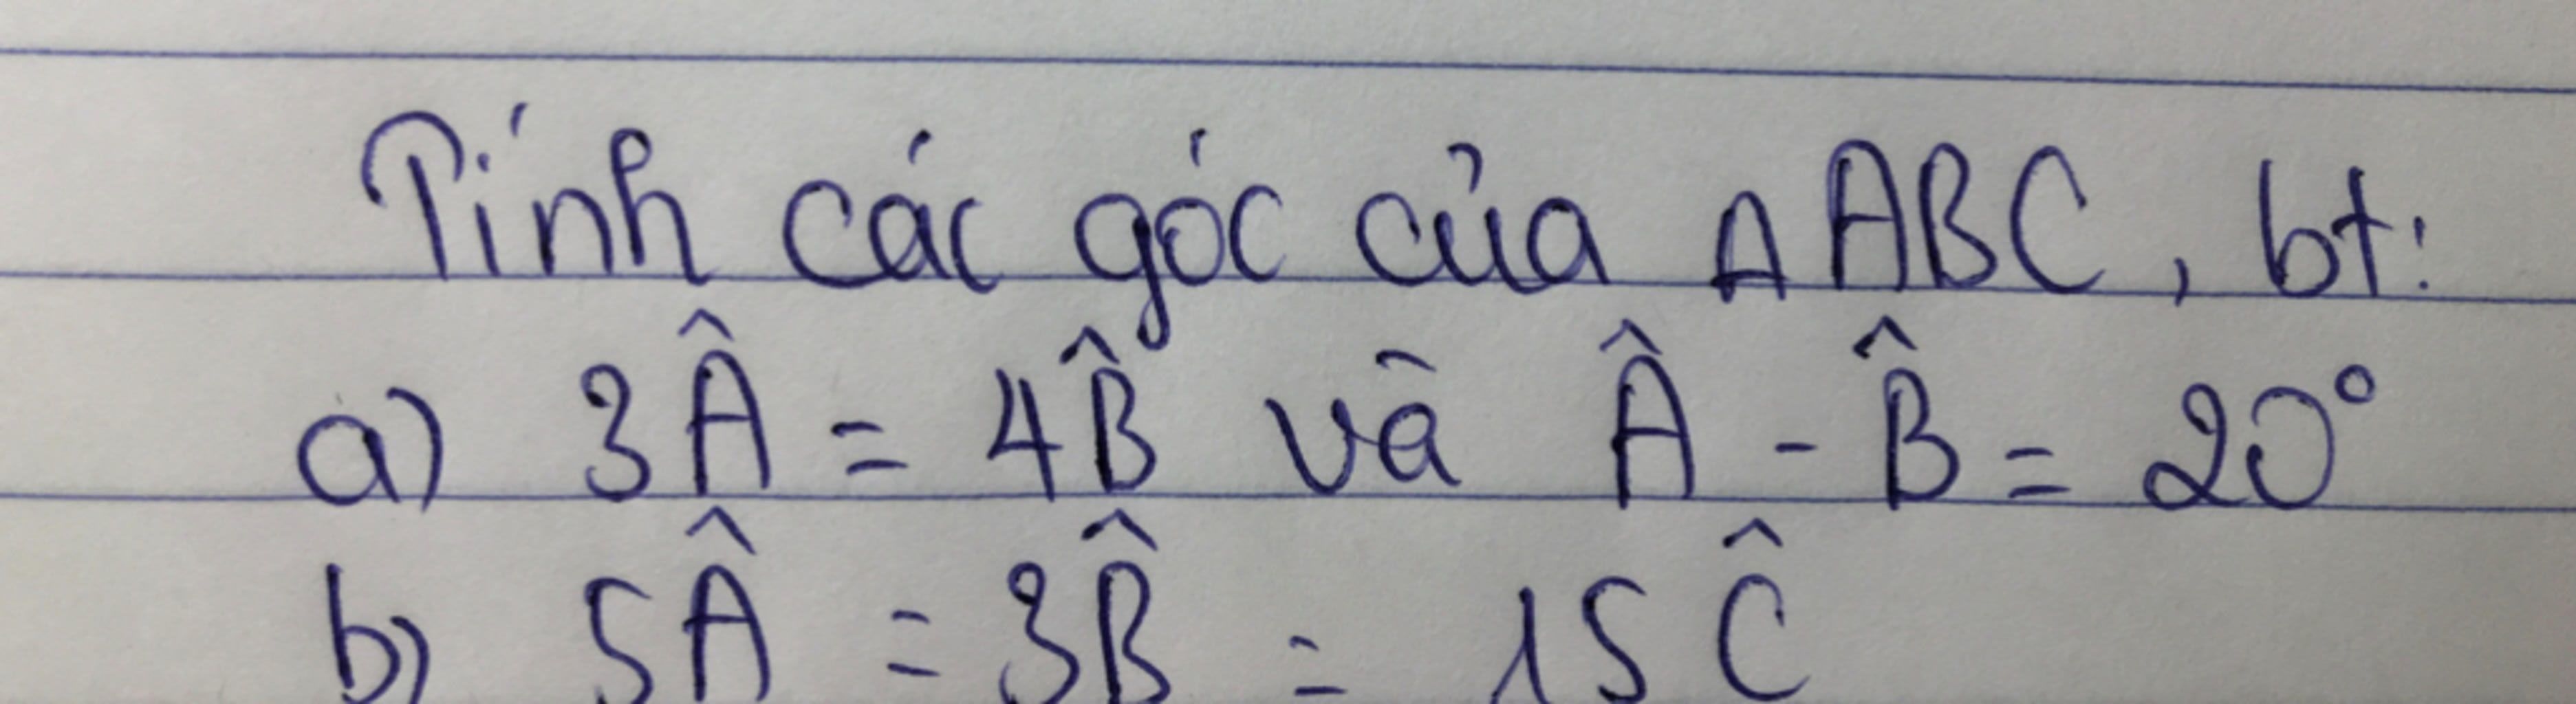 Tính các góc của Δ ABC, bt:
a) 3Â = 4B̂ và Â - B̂ = 20°
b) 5Â = 3B̂ = 15Ĉ